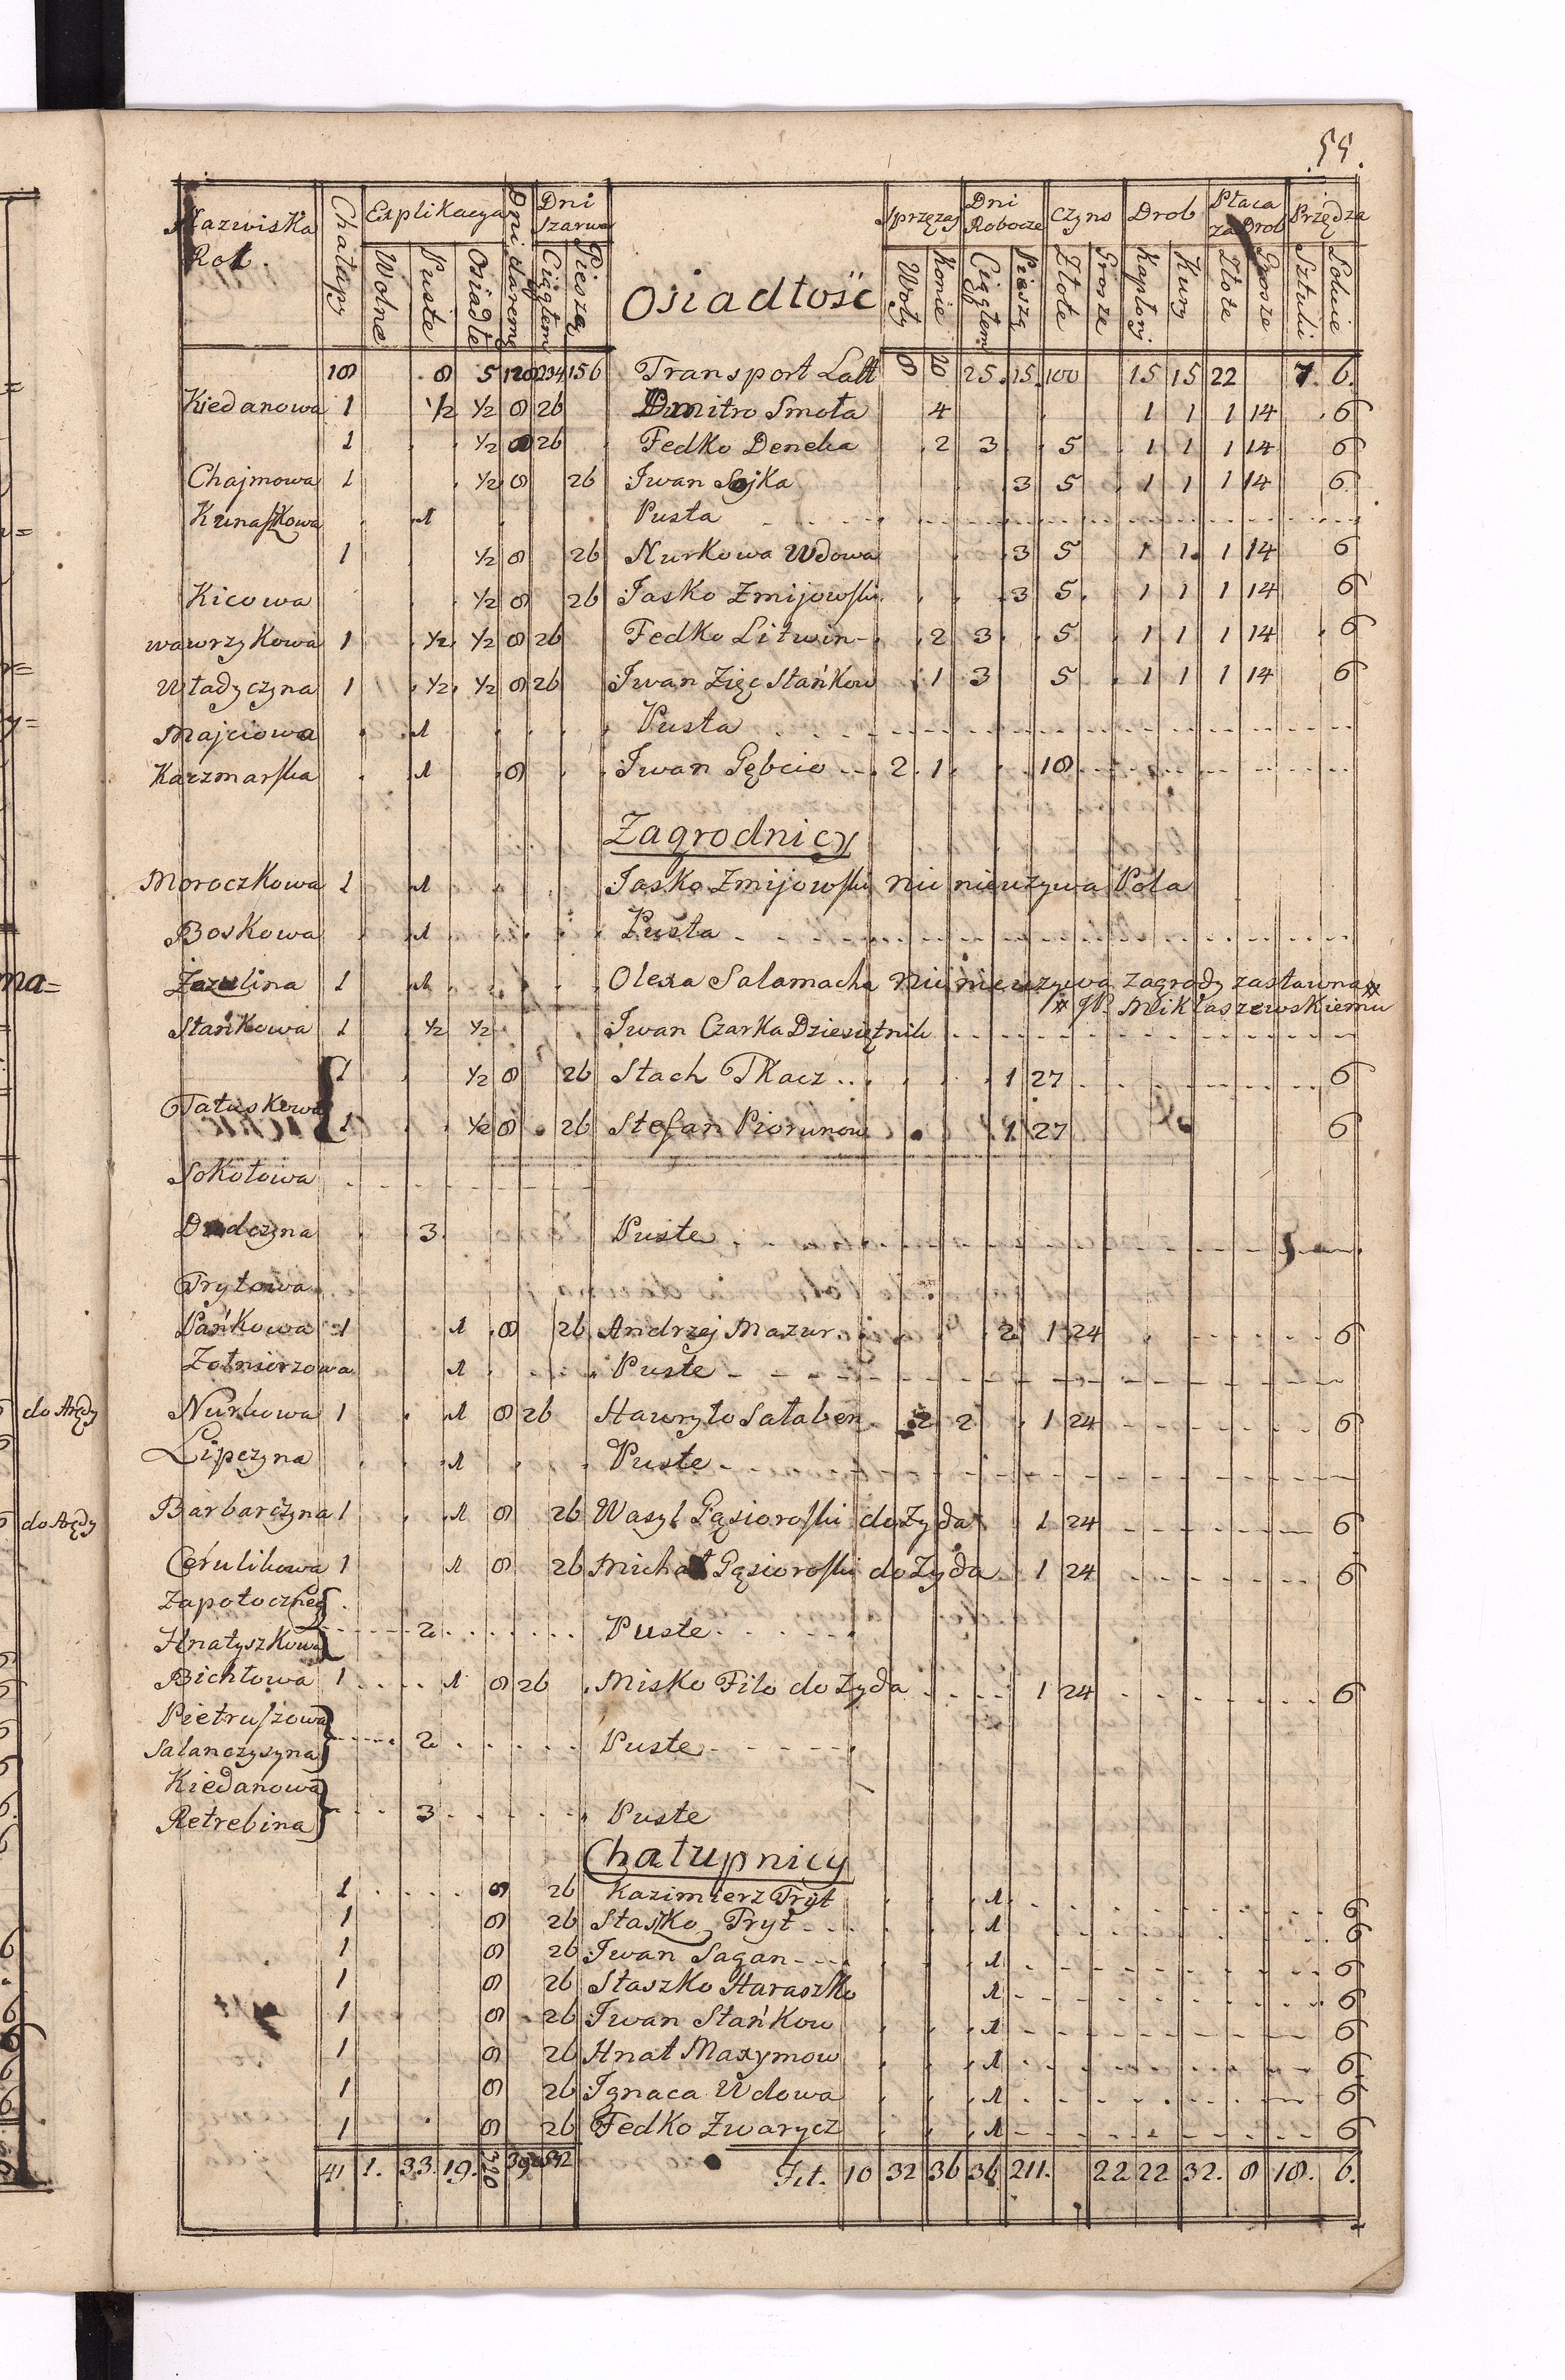 55.
Nazwiska Rol. Chałupy Esplikacya Dni dareme Dni szarwa Osiadłość Sprzęzaj Dni Robocze czyns Drob Płaca za Drob Przędza
Wolne Puste Osiadłe Ciągłem Pieszą Woły Konie Ciągłem Pieszą Złote Grosze Kapłony Kury Złote Grosze Sztuki Łokcie
18 8 5 128 234 156 Transport Latt 8 26 25. 15. 100 15 15 22 7. 6.
Kiedanowa 1 1/2 1/2 8 26 Dmitro Smoła 4 1 1 1 14 6
1 1/2 8 26 Fedko Deneka 2 3 5 1 1 1 14 6
Chajmowa 1 1/2 8 26 Iwan Sojka 3 5 1 1 1 14 6
Kunaszkowa 1 Pusta
1 1/2 8 26 Nurkowa Wdowa 3 5 1 1. 1 14 6
Kicowa 1/2 8 26 Jasko Zmijowski 3 5. 1 1 1 14 6
wawrzykowa 1 1/2 1/2 8 26 Fedko Litwin 2 3 5 1 1 1 14 6
Władyczyna 1 1/2 1/2 8 26 Iwan Zięc Stańkow 1 3 5 1 1 1 14 6
Majciowa 1 Pusta
Karzmarska 1 8 Iwan Gębcio 2 1 18
Zagrodnicy
Moroczkowa 1 1 Jasko Zmijowski nic nieużywa Pola
Boskowa 1 Pusta
Zazulina 1 1 Olexa Salamacha nic nieużywa zagrody zastawna
JP. Mikłaszewskiemu
Stańkowa 1 1/2 1/2 Iwan Czarka Dziesiętnik
1 1/2 8 26 Stach Tkacz 1 27 6
Tatuskowa
1 1/2 8 26 Stefan Piorunow 1 27 6
Sokołowa
Dudczyna 3 Puste
Trytowa
Pańkowa 1 1 8 26 Andrzej Mazur 2 1 24 6
Zołnierzowa 1 Puste
Nurkowa 1 1 8 26 Hawryło Sałaben 2 2 1 24 6
Lipczyna 1 Puste
Barbarczyna 1 1 8 26 Wasyl Gąsioroski do Zyda 1 24 6
Cerulikowa 1 1 8 26 Michał Gąsioroski do Zyda 1 24 6
Zapotoczneg
2 Puste
Hnatyszkowa
Bichtowa 1 1 8 26 Misko Filo do Zyda 1 24 6
Pietruszowa
2 Puste
Salanczyszyna
Kiedanowa
3 Puste
Retrebina
Chałupnicy
1 8 26 Kazimierz Tryt 1 6
1 8 26 Staszko Tryt 1 6
1 8 26 Iwan Sagan 1 6
1 8 26 Staszko Haraszko 1 6
1 8 26 Iwan Stańkow 1 6
1 8 26 Hnat Maxymow 1 6
1 8 26 Ignaca Wdowa 1 6
1 8 26 Fedko Zwarycz 1 6
41 1. 33. 19. 320 Fit. 10 32 36 36 211. 22 22 32. 8 18. 6.
do Arędy
do Arędy